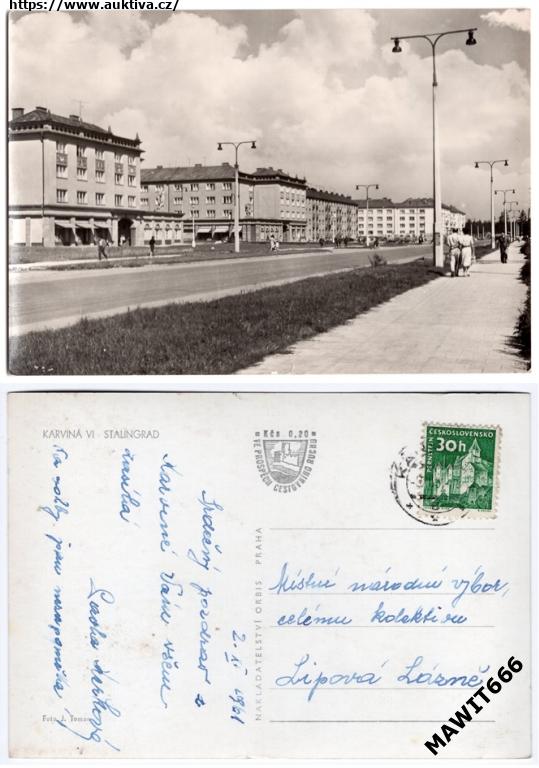 https://www.auktiva.cz/
KARVINÁ VI - STALINGRAD
Kčs 0,20
VE PROSPĚCH CESTOVNÍHO RUCHU
PERNŠTEJN
ČESKOSLOVENSKO
30h
2. XI 1961
Srdečný pozdrav z
Karviné Vám všem
zasílá
Na vždy jsem nezapoměla!
NAKLADATELSTVÍ ORBIS PRAHA
Místní národní výbor,
celému kolektivu
Lipová Lázně
Foto J. Toman
MAWIT666